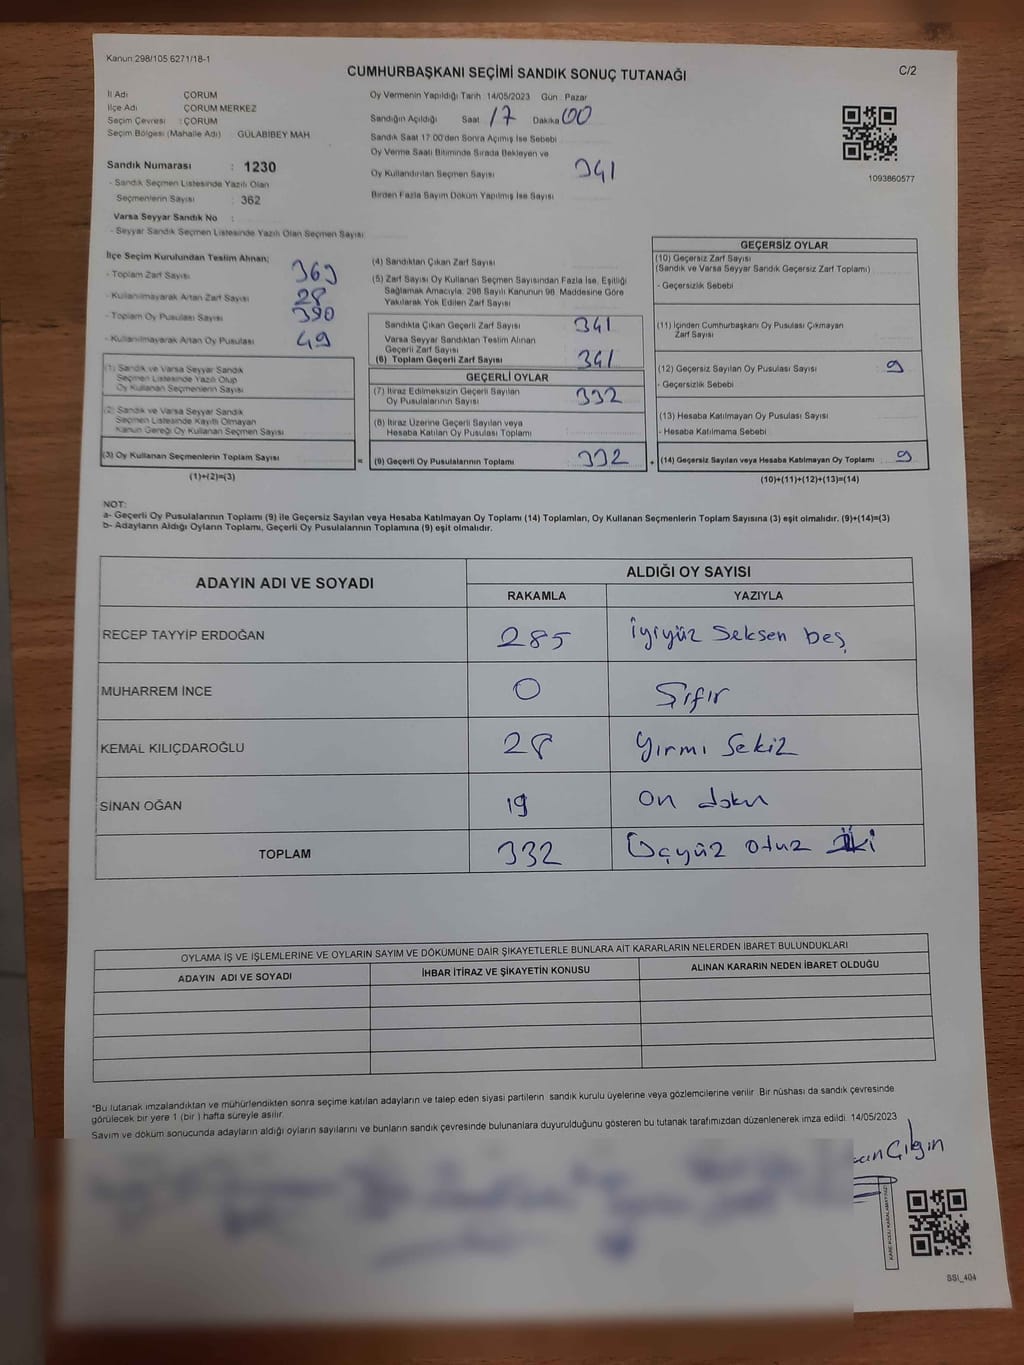 Kanun:298/105 6271/18-1
C/2
CUMHURBAŞKANI SEÇİMİ SANDIK SONUÇ TUTANAĞI
İl Adı ÇORUM
İlçe Adı ÇORUM MERKEZ
Seçim Çevresi : ÇORUM
Seçim Bölgesi (Mahalle Adı) GÜLABİBEY MAH
Sandık Numarası : 1230
- Sandık Seçmen Listesinde Yazılı Olan
Seçmenlerin Sayısı : 362
Varsa Seyyar Sandık No :
- Seyyar Sandık Seçmen Listesinde Yazılı Olan Seçmen Sayısı
Oy Vermenin Yapıldığı Tarih 14/05/2023 Gün : Pazar
Sandığın Açıldığı Saat 17 Dakika 00
Sandık Saat 17:00'den Sonra Açımış İse Sebebi
Oy Verme Saati Bitiminde Sırada Bekleyen ve
Oy Kullandırılan Seçmen Sayısı 341
Birden Fazla Sayım Döküm Yapılmış İse Sayısı
1093860577
İlçe Seçim Kurulundan Teslim Alınan;
- Toplam Zarf Sayısı 369
- Kullanılmayarak Artan Zarf Sayısı 28
- Toplam Oy Pusulası Sayısı 390
- Kullanılmayarak Artan Oy Pusulası 49
(1) Sandık ve Varsa Seyyar Sandık
Seçmen Listesinde Yazılı Olup
Oy Kullanan Seçmenlerin Sayısı
(2) Sandık ve Varsa Seyyar Sandık
Seçmen Listesinde Kayıtlı Olmayan
Kanun Gereği Oy Kullanan Seçmen Sayısı
(3) Oy Kullanan Seçmenlerin Toplam Sayısı
(1)+(2)=(3)
(4) Sandıktan Çıkan Zarf Sayısı
(5) Zarf Sayısı Oy Kullanan Seçmen Sayısından Fazla İse, Eşitliği
Sağlamak Amacıyla, 298 Sayılı Kanunun 98. Maddesine Göre
Yakılarak Yok Edilen Zarf Sayısı
Sandıkta Çıkan Geçerli Zarf Sayısı 341
Varsa Seyyar Sandıktan Teslim Alınan
Geçerli Zarf Sayısı
(6) Toplam Geçerli Zarf Sayısı 341
GEÇERLİ OYLAR
(7) İtiraz Edilmeksizin Geçerli Sayılan
Oy Pusulalarının Sayısı 332
(8) İtiraz Üzerine Geçerli Sayılan veya
Hesaba Katılan Oy Pusulası Toplamı
= (9) Geçerli Oy Pusulalarının Toplamı 332 +
GEÇERSİZ OYLAR
(10) Geçersiz Zarf Sayısı
(Sandık ve Varsa Seyyar Sandık Geçersiz Zarf Toplamı)
- Geçersizlik Sebebi
(11) İçinden Cumhurbaşkanı Oy Pusulası Çıkmayan
Zarf Sayısı
(12) Geçersiz Sayılan Oy Pusulası Sayısı : 9
- Geçersizlik Sebebi
(13) Hesaba Katılmayan Oy Pusulası Sayısı
- Hesaba Katılmama Sebebi
(14) Geçersiz Sayılan veya Hesaba Katılmayan Oy Toplamı 9
(10)+(11)+(12)+(13)=(14)
NOT:
a- Geçerli Oy Pusulalarının Toplamı (9) ile Geçersiz Sayılan veya Hesaba Katılmayan Oy Toplamı (14) Toplamları, Oy Kullanan Seçmenlerin Toplam Sayısına (3) eşit olmalıdır. (9)+(14)=(3)
b- Adayların Aldığı Oyların Toplamı, Geçerli Oy Pusulalarının Toplamına (9) eşit olmalıdır.
ADAYIN ADI VE SOYADI ALDIĞI OY SAYISI
RAKAMLA YAZIYLA
RECEP TAYYİP ERDOĞAN 285 İyiyüz Seksen beş
MUHARREM İNCE 0 Sıfır
KEMAL KILIÇDAROĞLU 28 Yırmı Sekiz
SİNAN OĞAN 19 on
TOPLAM 332 Üçyüz otuz iki
OYLAMA İŞ VE İŞLEMLERİNE VE OYLARIN SAYIM VE DÖKÜMÜNE DAİR ŞİKAYETLERLE BUNLARA AİT KARARLARIN NELERDEN İBARET BULUNDUKLARI
ADAYIN ADI VE SOYADI İHBAR İTİRAZ VE ŞİKAYETİN KONUSU ALINAN KARARIN NEDEN İBARET OLDUĞU
*Bu tutanak imzalandıktan ve mühürlendikten sonra seçime katılan adayların ve talep eden siyasi partilerin sandık kurulu üyelerine veya gözlemcilerine verilir. Bir nüshası da sandık çevresinde
görülecek bir yere 1 (bir ) hafta süreyle asılır.
Sayım ve döküm sonucunda adayların aldığı oyların sayılarını ve bunların sandık çevresinde bulunanlara duyurulduğunu gösteren bu tutanak tarafımızdan düzenlenerek imza edildi. 14/05/2023
Çılgın
KARE KODU KARALAMAYINIZ!
SSI_404